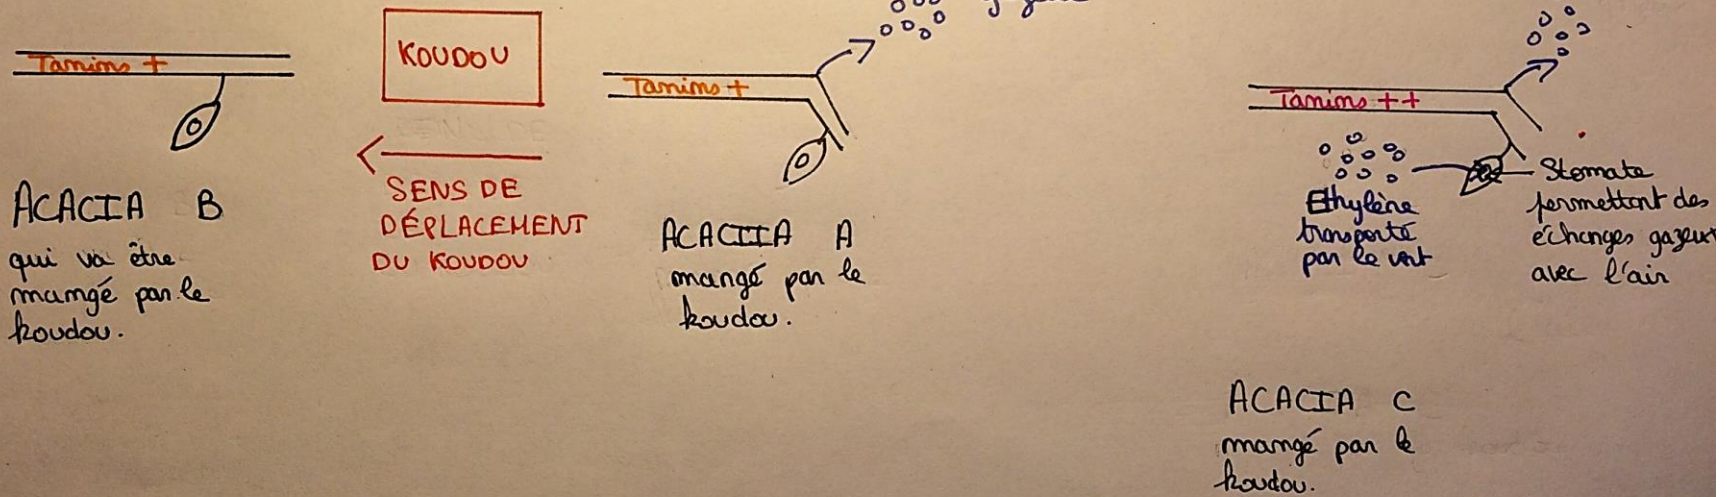 Tanins +
ACACIA B
qui va être
mangé par le
koudou.
KOUDOU
SENS DE
DÉPLACEMENT
DU KOUDOU
Tanins +
ACACIIA A
mangé par le
koudou.
Tanins ++
Ethylène
transporté
par le vent
Stomate
permettant des
échanges gazeux
avec l'air
ACACIA C
mangé par le
koudou.